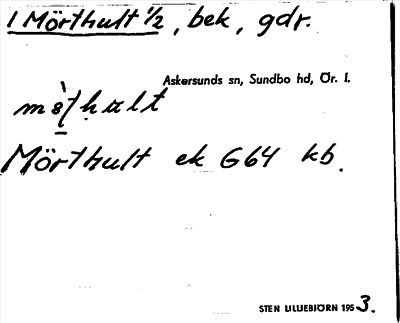 1 Mörthult 1/2, bek, gdr.
Askersunds sn, Sundbo hd, Ör. l.
Mörthult ek G64 kb.
STEN LILLIEBJÖRN 1953.